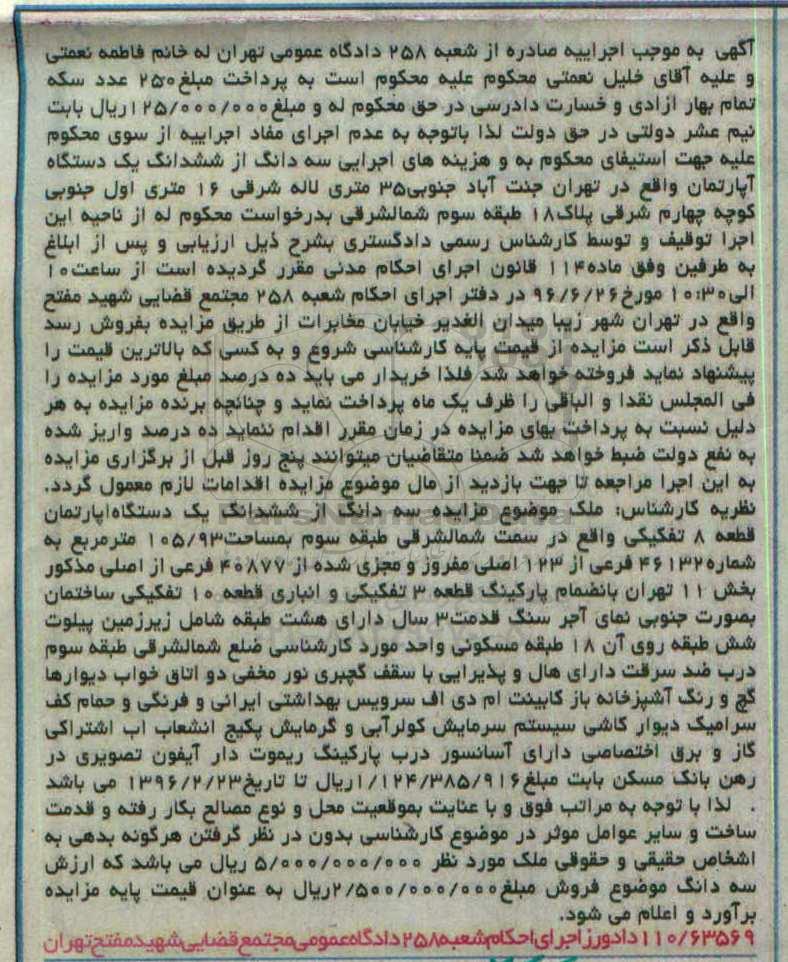 آگهی به موجب اجراییه صادره از شعبه ۲۵۸ دادگاه عمومی تهران له خانم فاطمه نعمتی
و علیه آقای خلیل نعمتی محکوم علیه محکوم است به پرداخت مبلغ۲۵۰ عدد سکه
تمام بهار ازادی و خسارت دادرسی در حق محکوم له و مبلغ۱۲۵/۰۰۰/۰۰۰ریال بابت
نیم عشر دولتی در حق دولت لذا باتوجه به عدم اجرای مفاد اجراییه از سوی محکوم
علیه جهت استیفای محکوم به و هزینه های اجرایی سه دانگ از ششدانگ یک دستگاه
آپارتمان واقع در تهران جنت آباد جنوبی۳۵ متری لاله شرقی ۱۶ متری اول جنوبی
کوچه چهارم شرقی پلاک۱۸ طبقه سوم شمالشرقی بدرخواست محکوم له از ناحیه این
اجرا توقیف و توسط کارشناس رسمی دادگستری بشرح ذیل ارزیابی و پس از ابلاغ
به طرفین وفق ماده۱۱۴ قانون اجرای احکام مدنی مقرر گردیده است از ساعت۱۰
الی۱۰:۳۰ مورخ۹۶/۶/۲۶ در دفتر اجرای احکام شعبه ۲۵۸ مجتمع قضایی شهید مفتح
واقع در تهران شهر زیبا میدان الغدیر خیابان مخابرات از طریق مزایده بفروش رسد
قابل ذکر است مزایده از قیمت پایه کارشناسی شروع و به کسی که بالاترین قیمت را
پیشنهاد نماید فروخته خواهد شد فلذا خریدار می باید ده درصد مبلغ مورد مزایده را
فی المجلس نقدا و الباقی را ظرف یک ماه پرداخت نماید و چنانچه برنده مزایده به هر
دلیل نسبت به پرداخت بهای مزایده در زمان مقرر اقدام ننماید ده درصد واریز شده
به نفع دولت ضبط خواهد شد ضمنا متقاضیان میتوانند پنج روز قبل از برگزاری مزایده
به این اجرا مراجعه تا جهت بازدید از مال موضوع مزایده اقدامات لازم معمول گردد.
نظریه کارشناس: ملک موضوع مزایده سه دانگ از ششدانگ یک دستگاه‌اپارتمان
قطعه ۸ تفکیکی واقع در سمت شمالشرقی طبقه سوم بمساحت۱۰۵/۹۳ مترمربع به
شماره۴۶۱۳۲ فرعی از ۱۲۳ اصلی مفروز و مجزی شده از ۴۰۸۷۷ فرعی از اصلی مذکور
بخش ۱۱ تهران بانضمام پارکینگ قطعه ۳ تفکیکی و انباری قطعه ۱۰ تفکیکی ساختمان
بصورت جنوبی نمای آجر سنگ قدمت۳ سال دارای هشت طبقه شامل زیرزمین پیلوت
شش طبقه روی آن ۱۸ طبقه مسکونی واحد مورد کارشناسی ضلع شمالشرقی طبقه سوم
درب ضد سرقت دارای هال و پذیرایی با سقف گچبری نور مخفی دو اتاق خواب دیوارها
گچ و رنگ آشپزخانه باز کابینت ام دی اف سرویس بهداشتی ایرانی و فرنگی و حمام کف
سرامیک دیوار کاشی سیستم سرمایش کولرآبی و گرمایش پکیج انشعاب اب اشتراکی
گاز و برق اختصاصی دارای آسانسور درب پارکینگ ریموت دار آیفون تصویری در
رهن بانک مسکن بابت مبلغ۱/۱۲۴/۳۸۵/۹۱۶ریال تا تاریخ۱۳۹۶/۲/۲۳ می باشد
. لذا با توجه به مراتب فوق و با عنایت بموقعیت محل و نوع مصالح بکار رفته و قدمت
ساخت و سایر عوامل موثر در موضوع کارشناسی بدون در نظر گرفتن هرگونه بدهی به
اشخاص حقیقی و حقوقی ملک مورد نظر ۵/۰۰۰/۰۰۰/۰۰۰ ریال می باشد که ارزش
سه دانگ موضوع فروش مبلغ۲/۵۰۰/۰۰۰/۰۰۰ریال به عنوان قیمت پایه مزایده
برآورد و اعلام می شود.
۱۱۰/۶۳۵۶۹ دادورز اجرای احکام شعبه ۲۵۸ دادگاه عمومی مجتمع قضایی شهید مفتح تهران